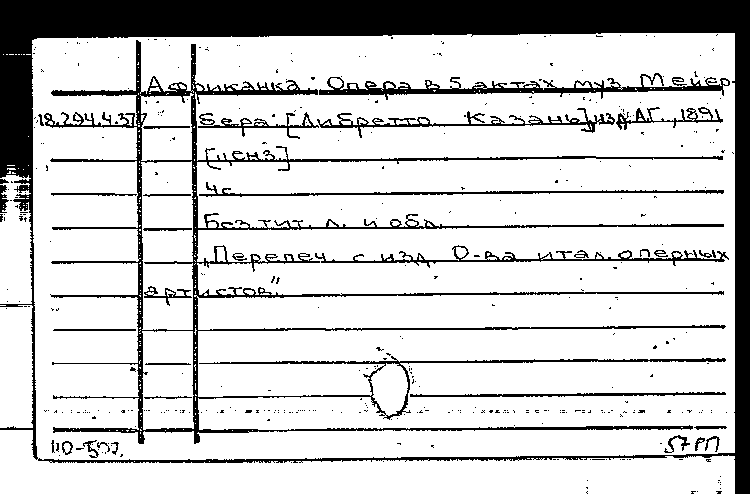 Африканка: Опера в 5 актах, муз. Мейер-
18.294.4.577 бера: [Либретто. Казань], изд. А.Г., 1891
[ценз.]
4 с.
Без тит. л. и обл.
„Перепеч. с изд. О-ва итал. оперных
артистов"
57РП